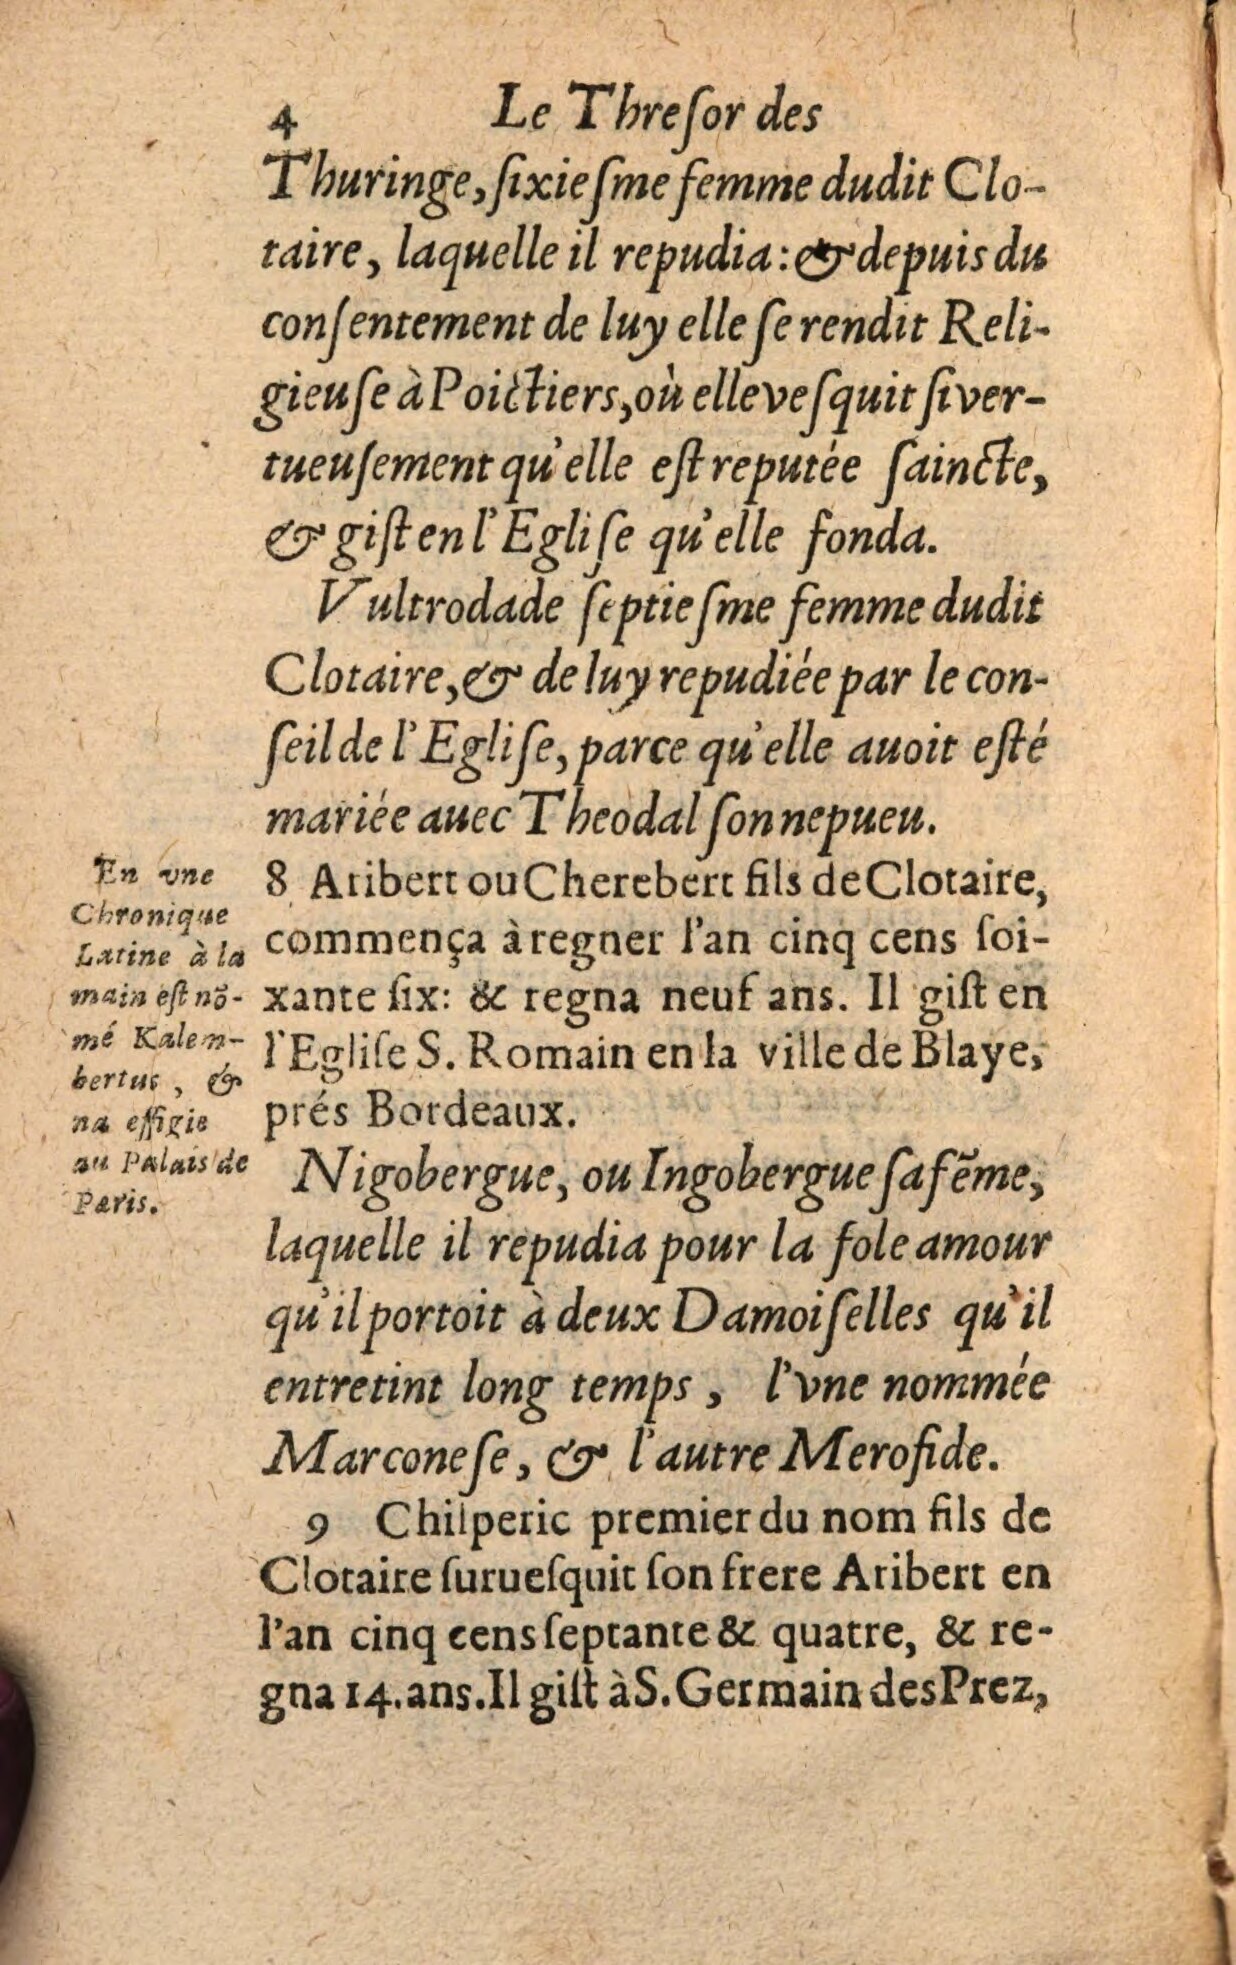 4 Le Threſor des
Thuringe, ſixieſme femme dudit Clo-
taire, laquelle il repudia: & depuis du
conſentement de luy elle ſe rendit Reli-
gieuſe à Poictiers, où elle veſquit ſi ver-
tueuſement qu'elle eſt reputée ſaincte,
& giſt en l'Egliſe qu'elle fonda.
Vultrodade ſeptieſme femme dudit
Clotaire, & de luy repudiée par le con-
ſeil de l'Egliſe, parce qu'elle auoit eſté
mariée auec Theodal ſon nepueu.
8 Aribert ou Cherebert fils de Clotaire,
commença à regner l'an cinq cens ſoi-
xante ſix: & regna neuf ans. Il giſt en
l'Egliſe S. Romain en la ville de Blaye,
prés Bordeaux.
En vne
Chronique
Latine à la
main eſt nõ-
mé Kalem-
bertus, &
na effigie
au Palais de
Paris.
Nigobergue, ou Ingobergue ſa fẽme,
laquelle il repudia pour la fole amour
qu'il portoit à deux Damoiſelles qu'il
entretint long temps, l'vne nommée
Marconeſe, & l'autre Merofide.
9 Chilperic premier du nom fils de
Clotaire ſurueſquit ſon frere Aribert en
l'an cinq cens ſeptante & quatre, & re-
gna 14. ans. Il giſt à S. Germain des Prez,